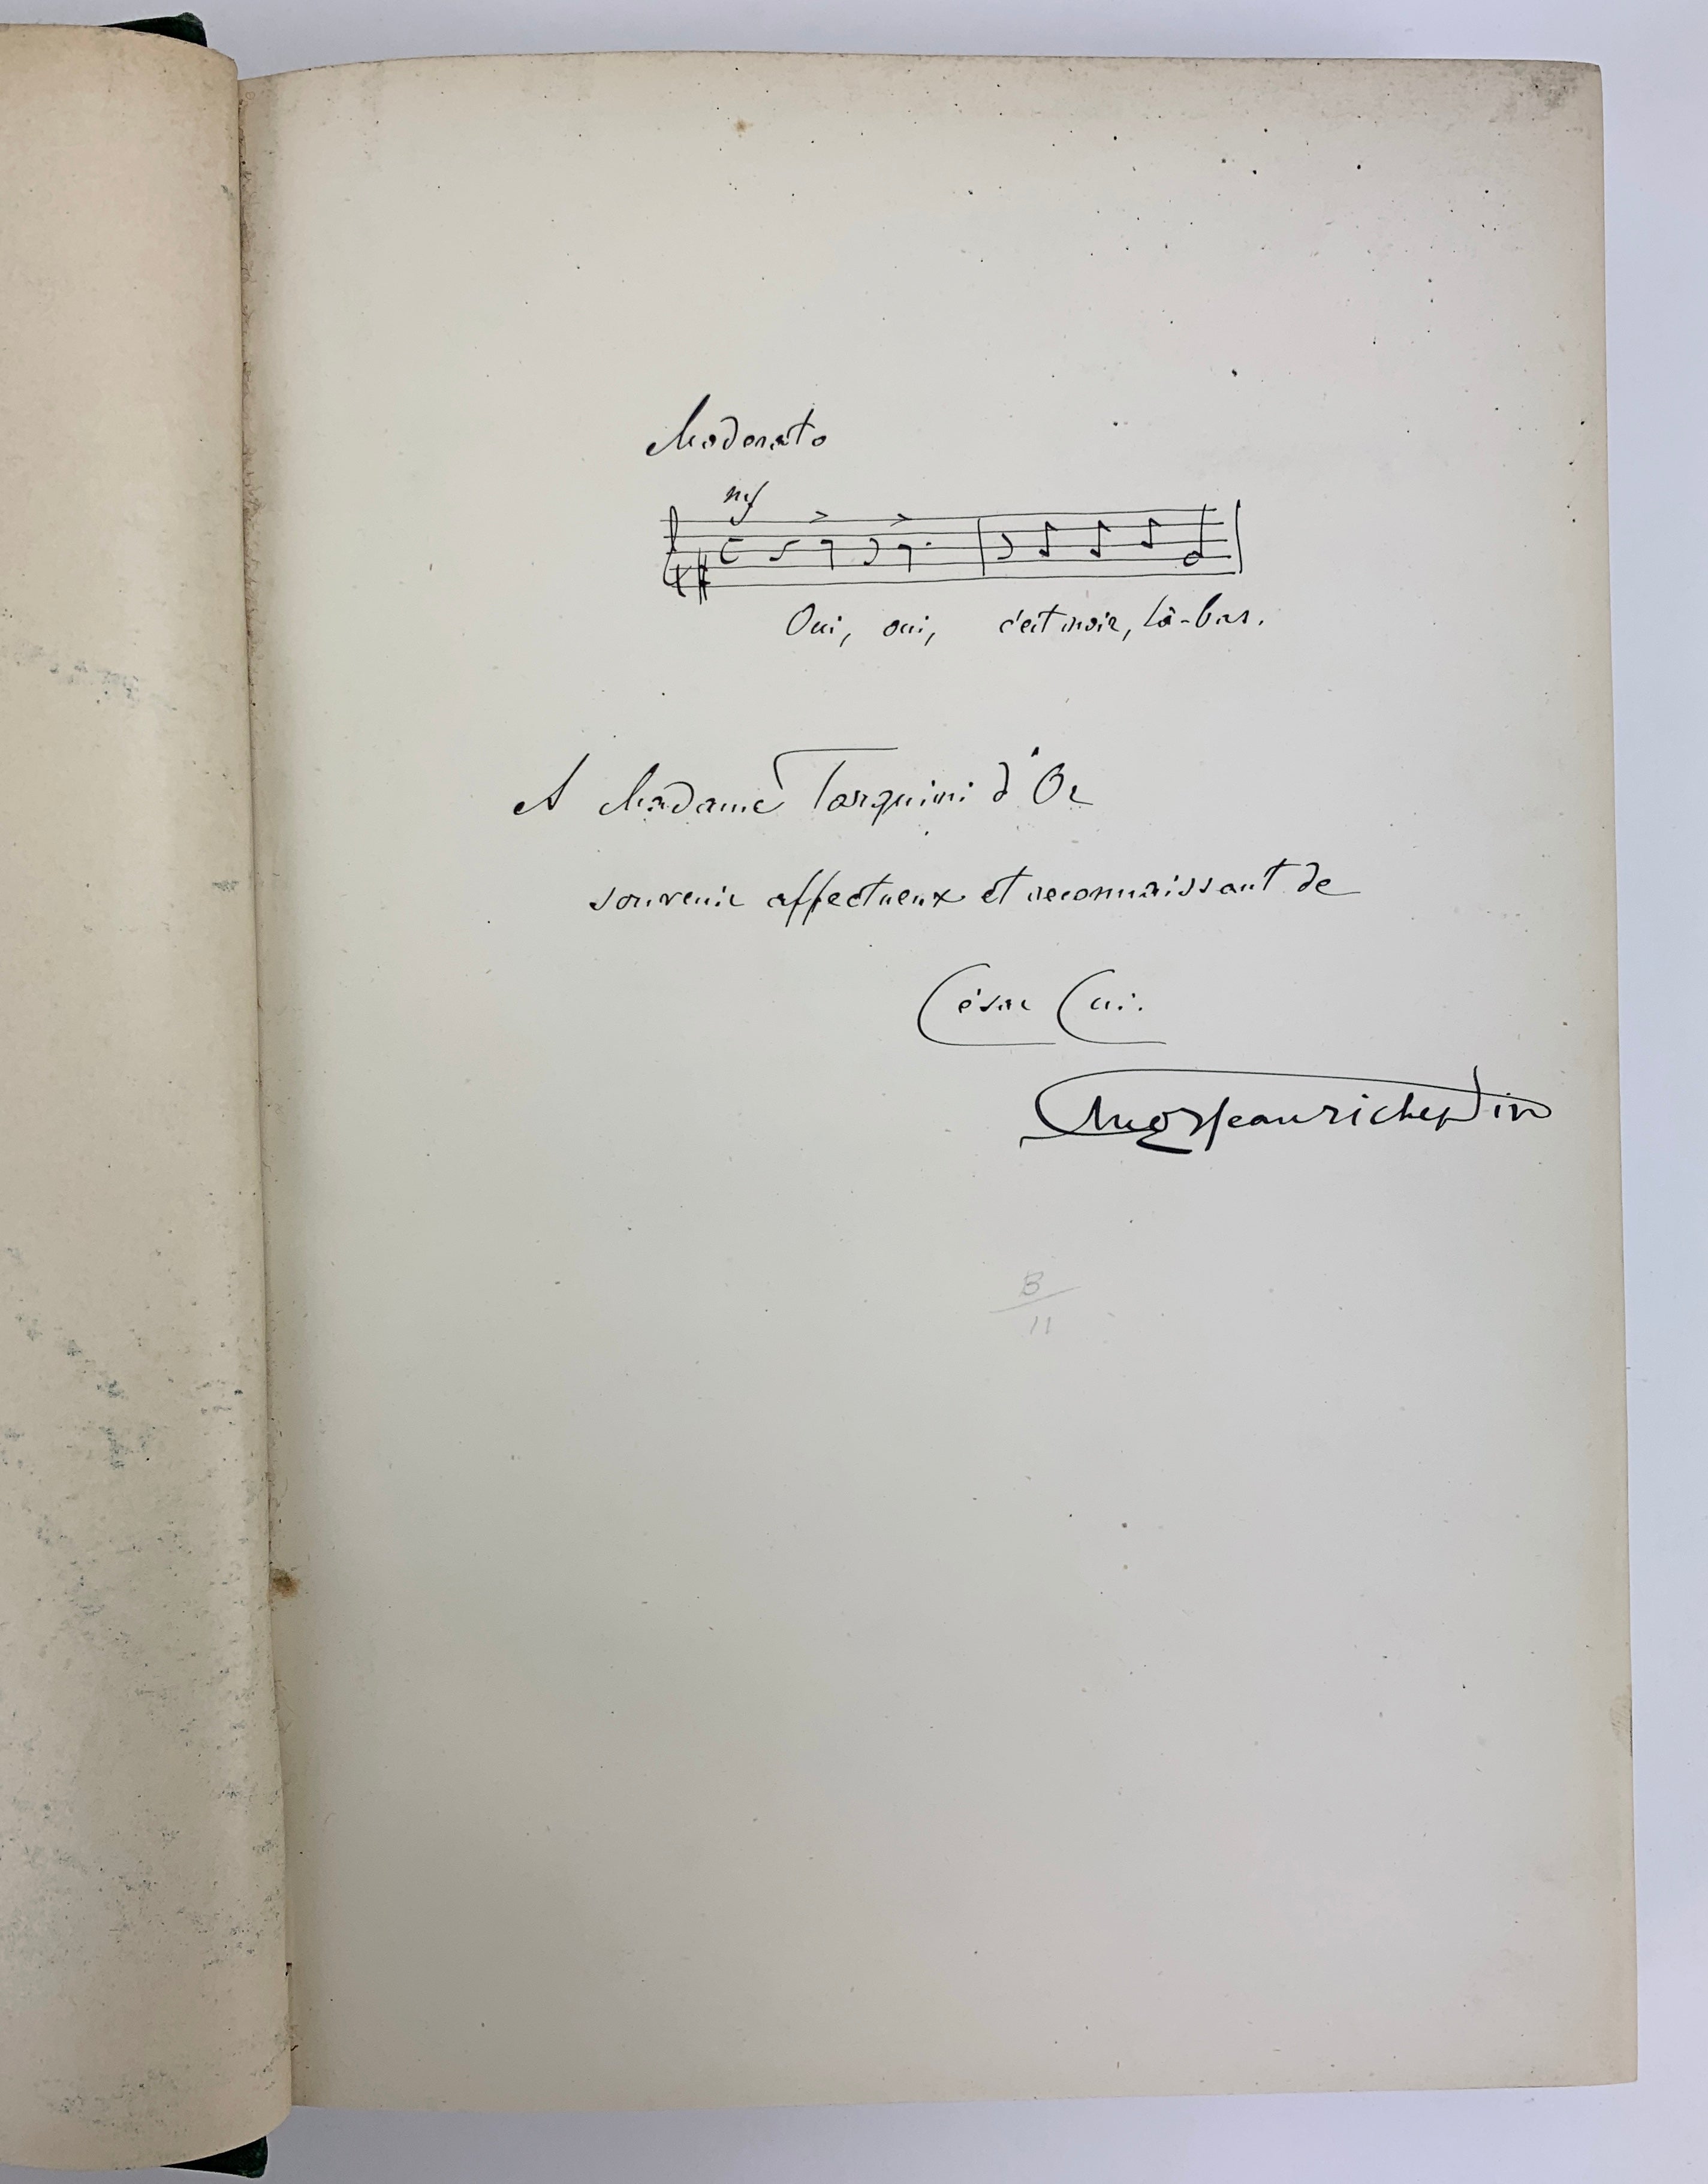 Moderato
mf
Oui, oui, c'est noir, là-bas.
A Madame Tarquini d'Or
souvenir affectueux et reconnaissant de
César Cui.
Jean richepin
B
11